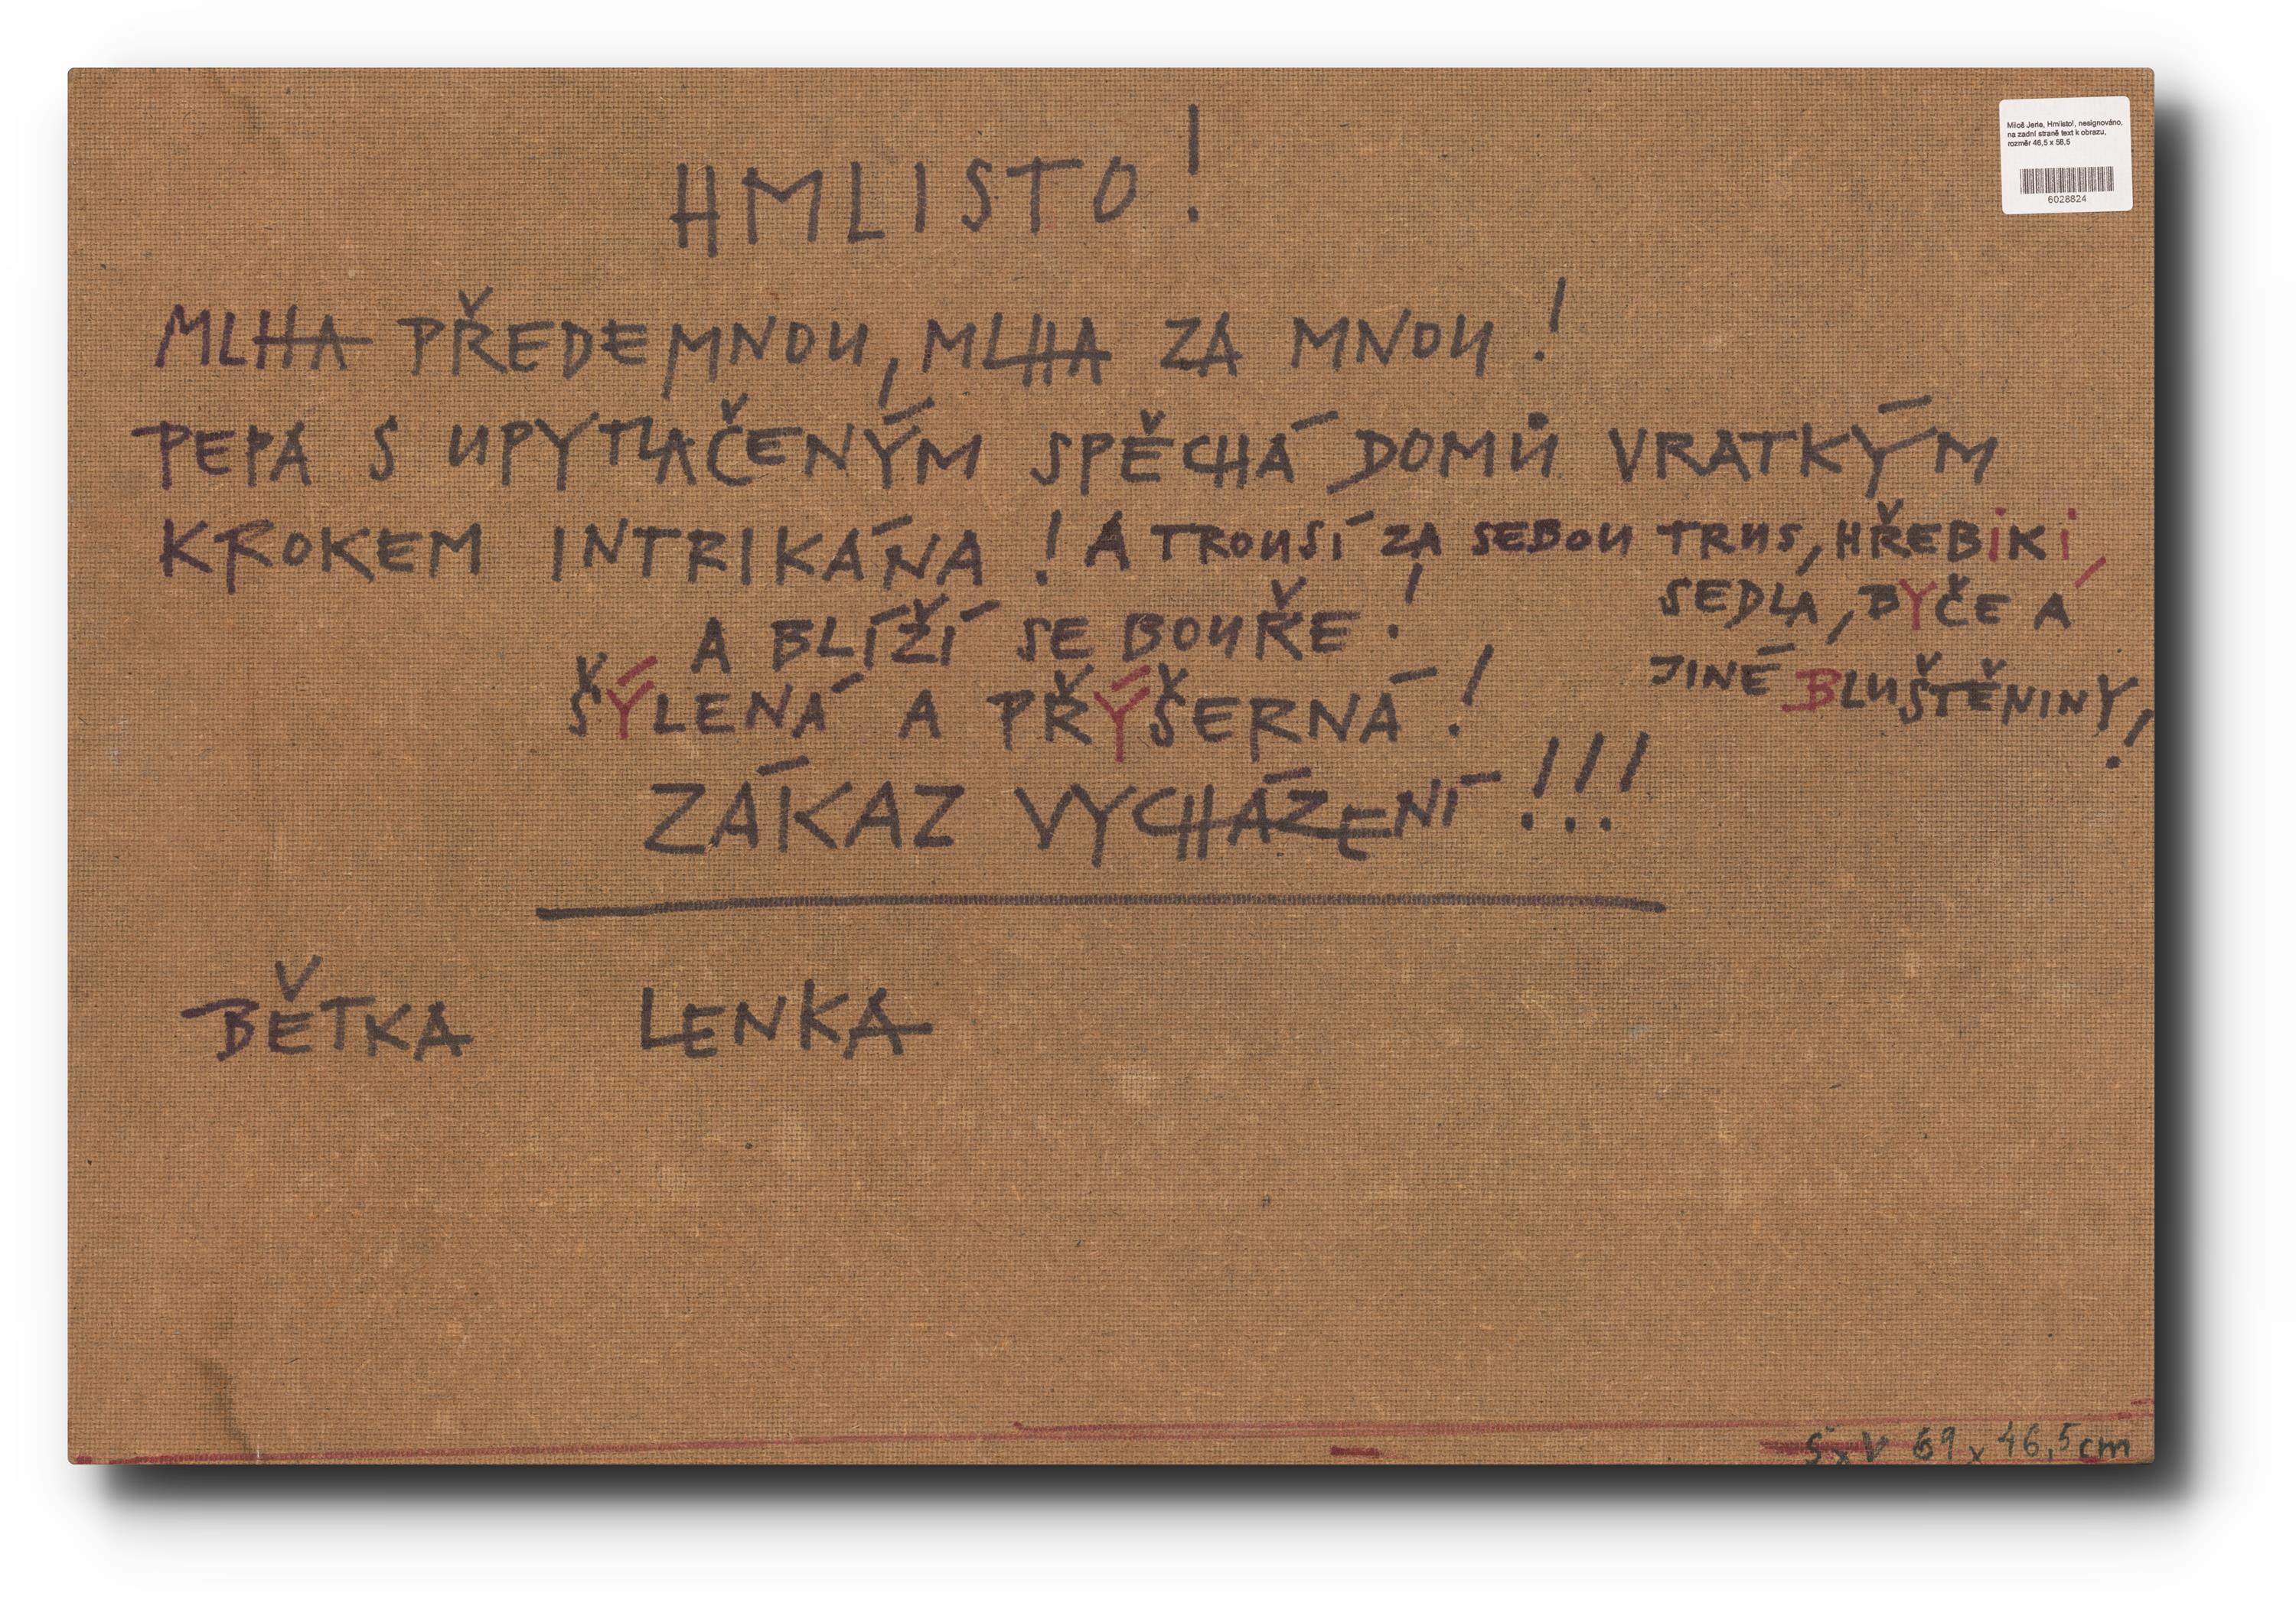 HMLISTO!
MLHA PŘEDEMNOU, MLHA ZA MNOU!
PEPA S UPYTLAČENÝM SPĚCHÁ DOMŮ VRATKÝM
KROKEM INTRIKÁNA! A TROUSÍ ZA SEBOU TRUS, HŘEBiKi,
SEDLA, BYČE A
JINÉ BLUŠTĚNINY!
A BLÍŽÍ SE BOUŘE!
ŠÝLENÁ A PŘÝŠERNÁ!
ZÁKAZ VYCHÁZENÍ!!!
BĚTKA LENKA
Š x V 69 x 46,5 cm
Miloš Jerie, Hmlisto!, nesignováno,
na zadní straně text k obrazu,
rozměr 46,5 x 58,5
6028824